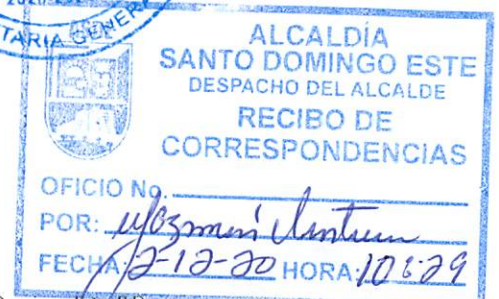 ALCALDÍA
SANTO DOMINGO ESTE
DESPACHO DEL ALCALDE
RECIBO DE
CORRESPONDENCIAS
OFICIO No.
POR:
FECHA: 2-12-20 HORA: 10:29